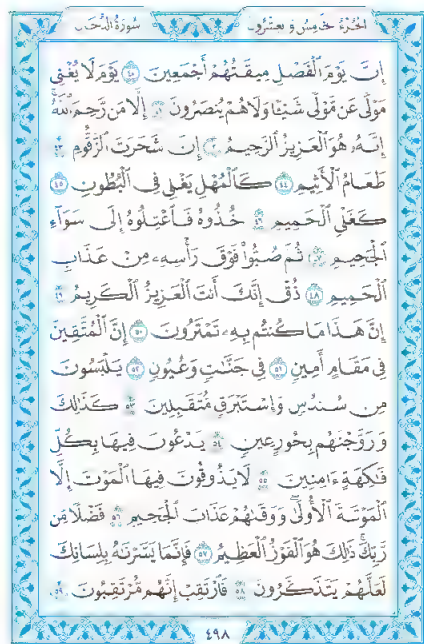 الجزء خمس وعشرون
سورة الدخان
إِنَّ يَوْمَ ٱلْفَصْلِ مِيقَـٰتُهُمْ أَجْمَعِينَ ٤٠ يَوْمَ لَا يُغْنِى
مَوْلًى عَن مَّوْلًى شَيْـًٔا وَلَا هُمْ يُنصَرُونَ ٤١ إِلَّا مَن رَّحِمَ ٱللَّهُ
إِنَّهُۥ هُوَ ٱلْعَزِيزُ ٱلرَّحِيمُ ٤٢ إِنَّ شَجَرَتَ ٱلزَّقُّومِ ٤٣
طَعَامُ ٱلْأَثِيمِ ٤٤ كَٱلْمُهْلِ يَغْلِى فِى ٱلْبُطُونِ ٤٥
كَغَلْىِ ٱلْحَمِيمِ ٤٦ خُذُوهُ فَٱعْتِلُوهُ إِلَىٰ سَوَآءِ
ٱلْجَحِيمِ ٤٧ ثُمَّ صُبُّوا۟ فَوْقَ رَأْسِهِۦ مِنْ عَذَابِ
ٱلْحَمِيمِ ٤٨ ذُقْ إِنَّكَ أَنتَ ٱلْعَزِيزُ ٱلْكَرِيمُ ٤٩
إِنَّ هَـٰذَا مَا كُنتُم بِهِۦ تَمْتَرُونَ ٥٠ إِنَّ ٱلْمُتَّقِينَ
فِى مَقَامٍ أَمِينٍ ٥١ فِى جَنَّـٰتٍ وَعُيُونٍ ٥٢ يَلْبَسُونَ
مِن سُندُسٍ وَإِسْتَبْرَقٍ مُّتَقَـٰبِلِينَ ٥٣ كَذَٰلِكَ
وَزَوَّجْنَـٰهُم بِحُورٍ عِينٍ ٥٤ يَدْعُونَ فِيهَا بِكُلِّ
فَـٰكِهَةٍ ءَامِنِينَ ٥٥ لَا يَذُوقُونَ فِيهَا ٱلْمَوْتَ إِلَّا
ٱلْمَوْتَةَ ٱلْأُولَىٰ وَوَقَىٰهُمْ عَذَابَ ٱلْجَحِيمِ ٥٦ فَضْلًا مِّن
رَّبِّكَ ذَٰلِكَ هُوَ ٱلْفَوْزُ ٱلْعَظِيمُ ٥٧ فَإِنَّمَا يَسَّرْنَـٰهُ بِلِسَانِكَ
لَعَلَّهُمْ يَتَذَكَّرُونَ ٥٨ فَٱرْتَقِبْ إِنَّهُم مُّرْتَقِبُونَ ٥٩
٤٩٨